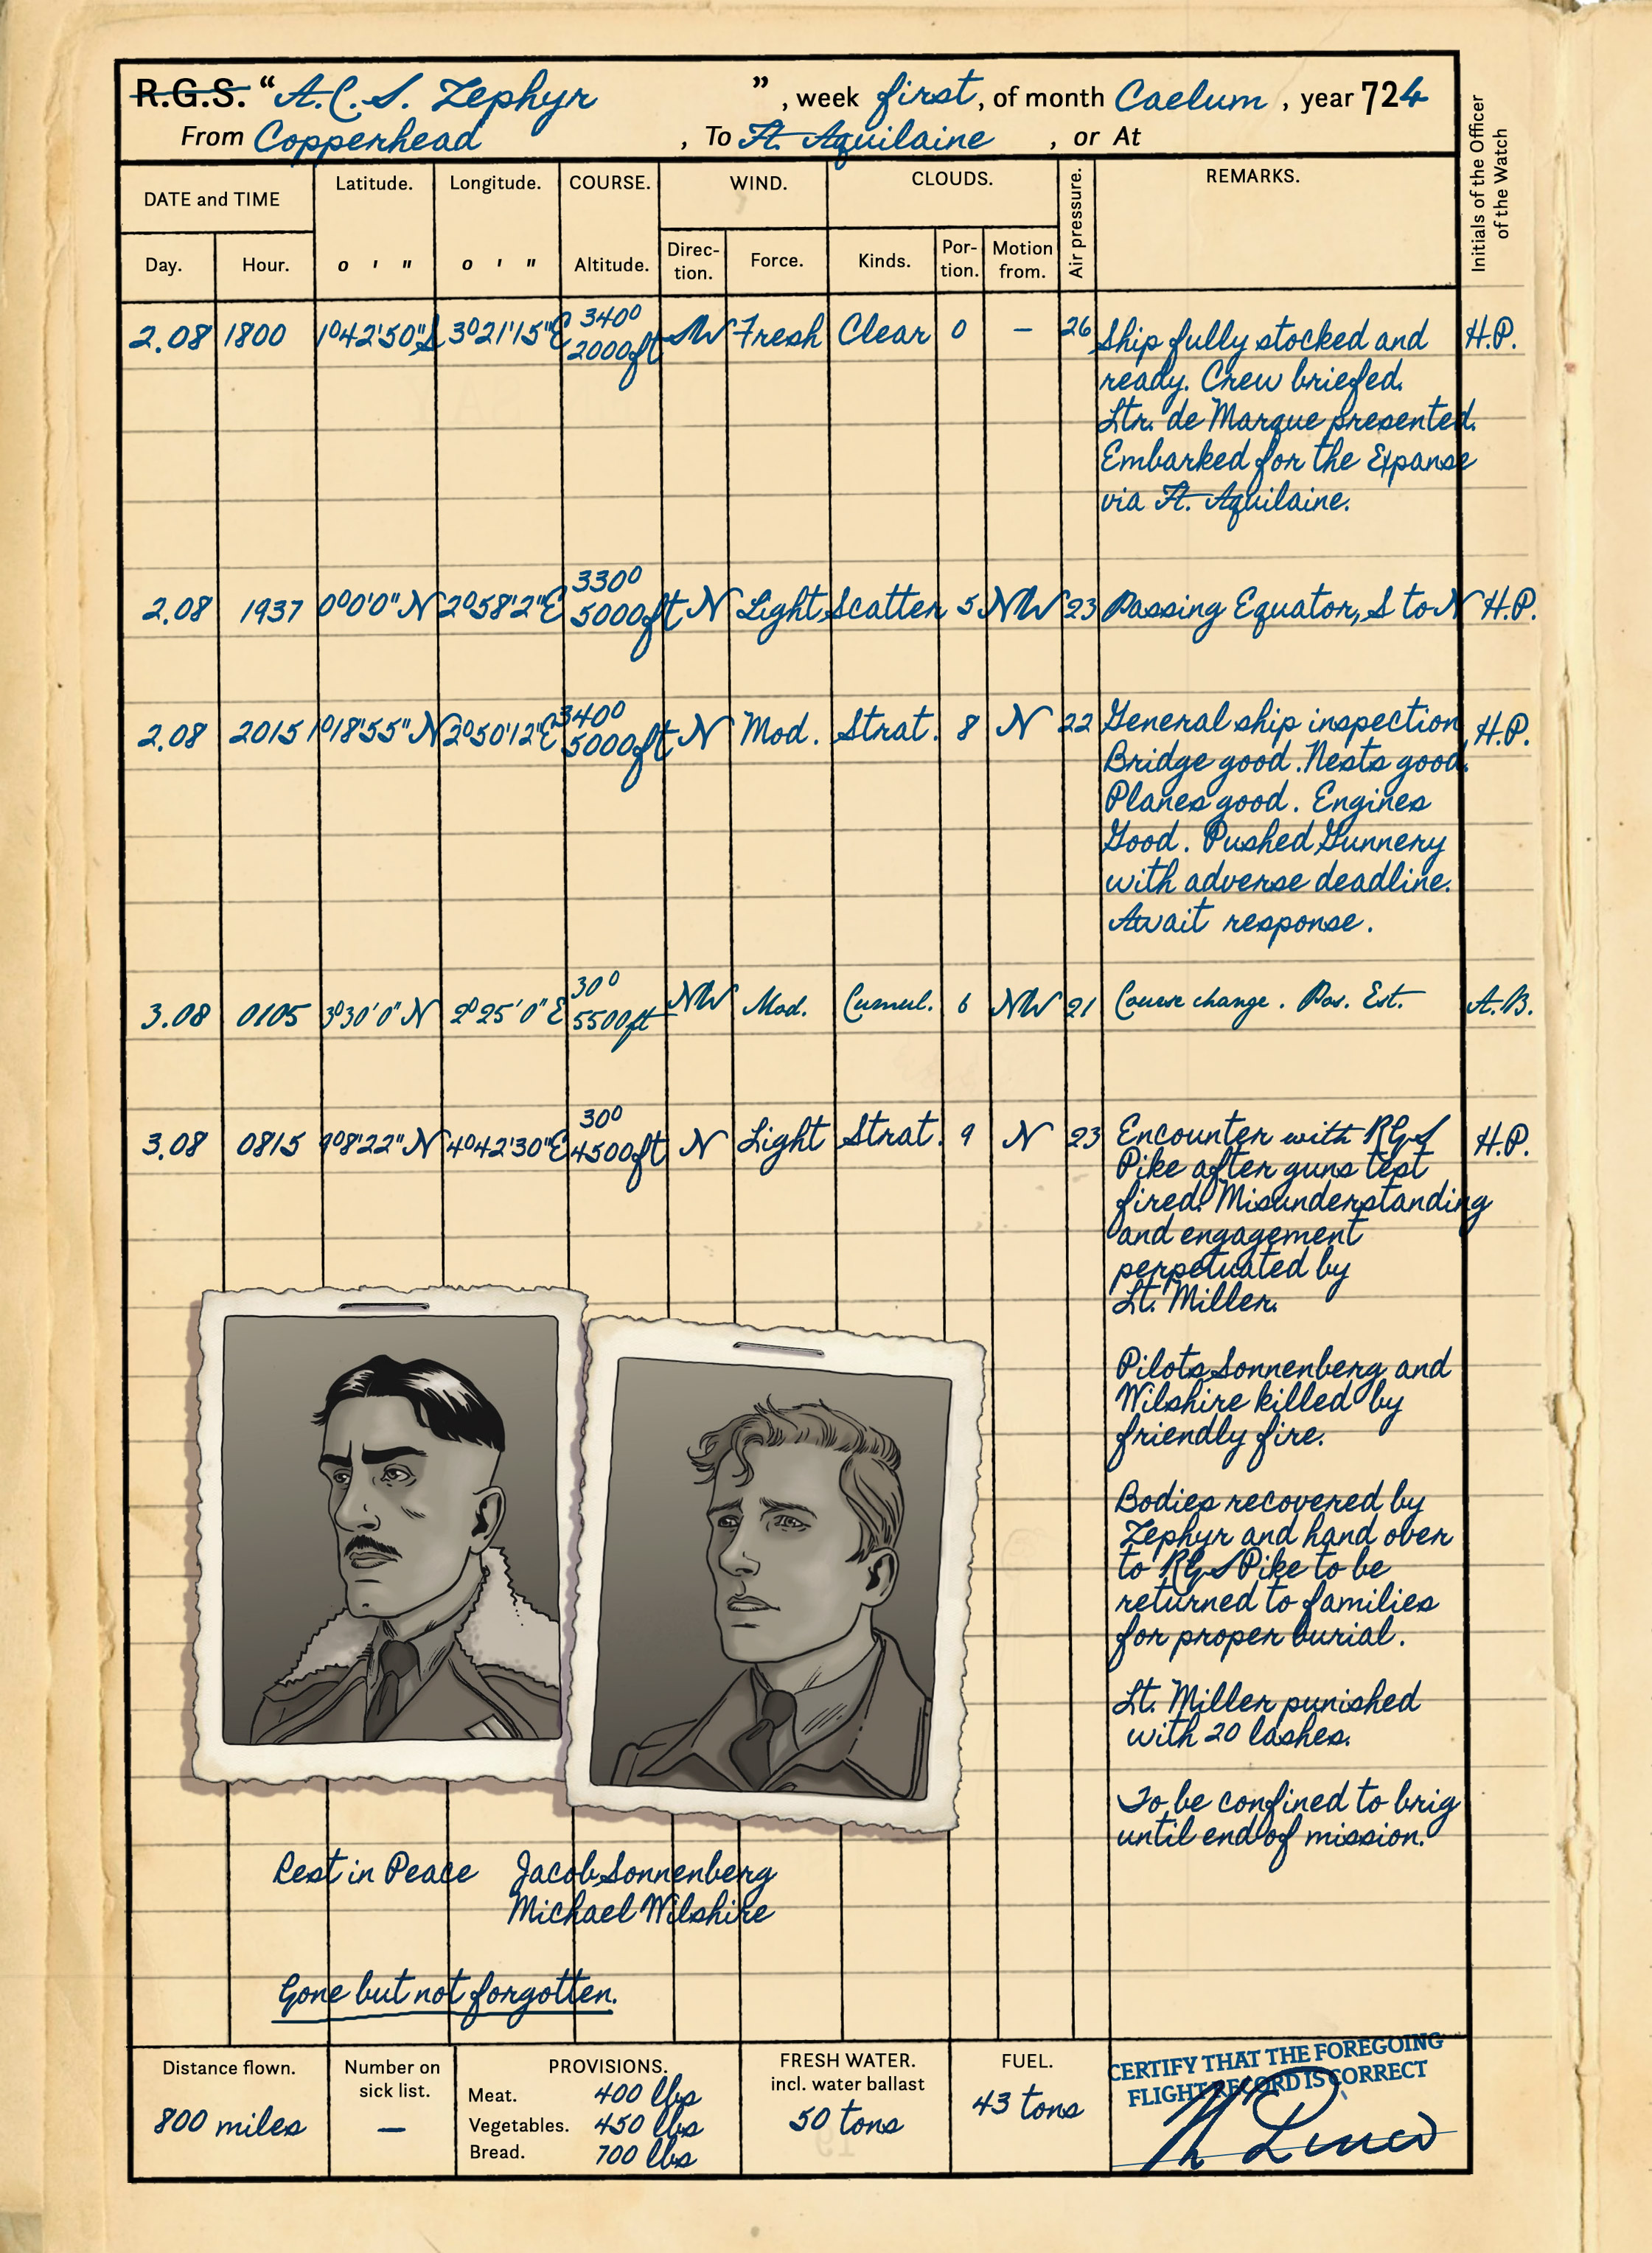 R.G.S. “A.C.S. Zephyr”, week first, of month Caelum, year 724
From Copperhead, To Ft. Aquilaine, or At
Initials of the Officer of the Watch
DATE and TIME Latitude. Longitude. COURSE. WIND. CLOUDS. Air pressure. REMARKS.
Day. Hour. o ' " o ' " Altitude. Direc-tion. Force. Kinds. Por-tion. Motion from.
2.08 1800 1°42'50"S 3°21'15"E 340° 2000ft SW Fresh Clear 0 – 26 Ship fully stocked and H.P.
ready. Crew briefed.
Ltr. de Marque presented.
Embarked for the Expanse
via Ft. Aquilaine.
2.08 1937 0°0'0"N 2°58'2"E 330° 5000ft N Light Scatter 5 NW 23 Passing Equator, S to N H.P.
2.08 2015 1°18'55"N 2°50'12"E 340° 5000ft N Mod. Strat. 8 N 22 General ship inspection, H.P.
Bridge good. Nests good.
Planes good. Engines
Good. Pushed Gunnery
with adverse deadline.
Await response.
3.08 0105 3°30'0"N 2°25'0"E 30° 5500ft NW Mod. Cumul. 6 NW 21 Course change. Pos. Est. A.B.
3.08 0815 9°8'22"N 4°42'30"E 30° 4500ft N Light Strat. 9 N 23 Encounter with RGS H.P.
Pike after guns test
fired. Misunderstanding
and engagement
perpetuated by
Lt. Miller.
Pilots Sonnenberg and
Wilshire killed by
friendly fire.
Bodies recovered by
Zephyr and hand over
to RGS Pike to be
returned to families
for proper burial.
Lt. Miller punished
with 20 lashes.
To be confined to brig
until end of mission.
Rest in Peace Jacob Sonnenberg
Michael Wilshire
Gone but not forgotten.
Distance flown.
800 miles
Number on
sick list.
–
PROVISIONS.
Meat. 400 lbs
Vegetables. 450 lbs
Bread. 700 lbs
FRESH WATER.
incl. water ballast
50 tons
FUEL.
43 tons
CERTIFY THAT THE FOREGOING
FLIGHT RECORD IS CORRECT